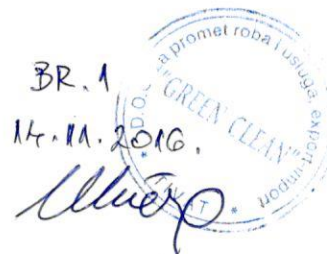 BR. 1
14.11.2016.
D.O.O. za promet roba i usluga, export-import
"GREEN CLEAN"